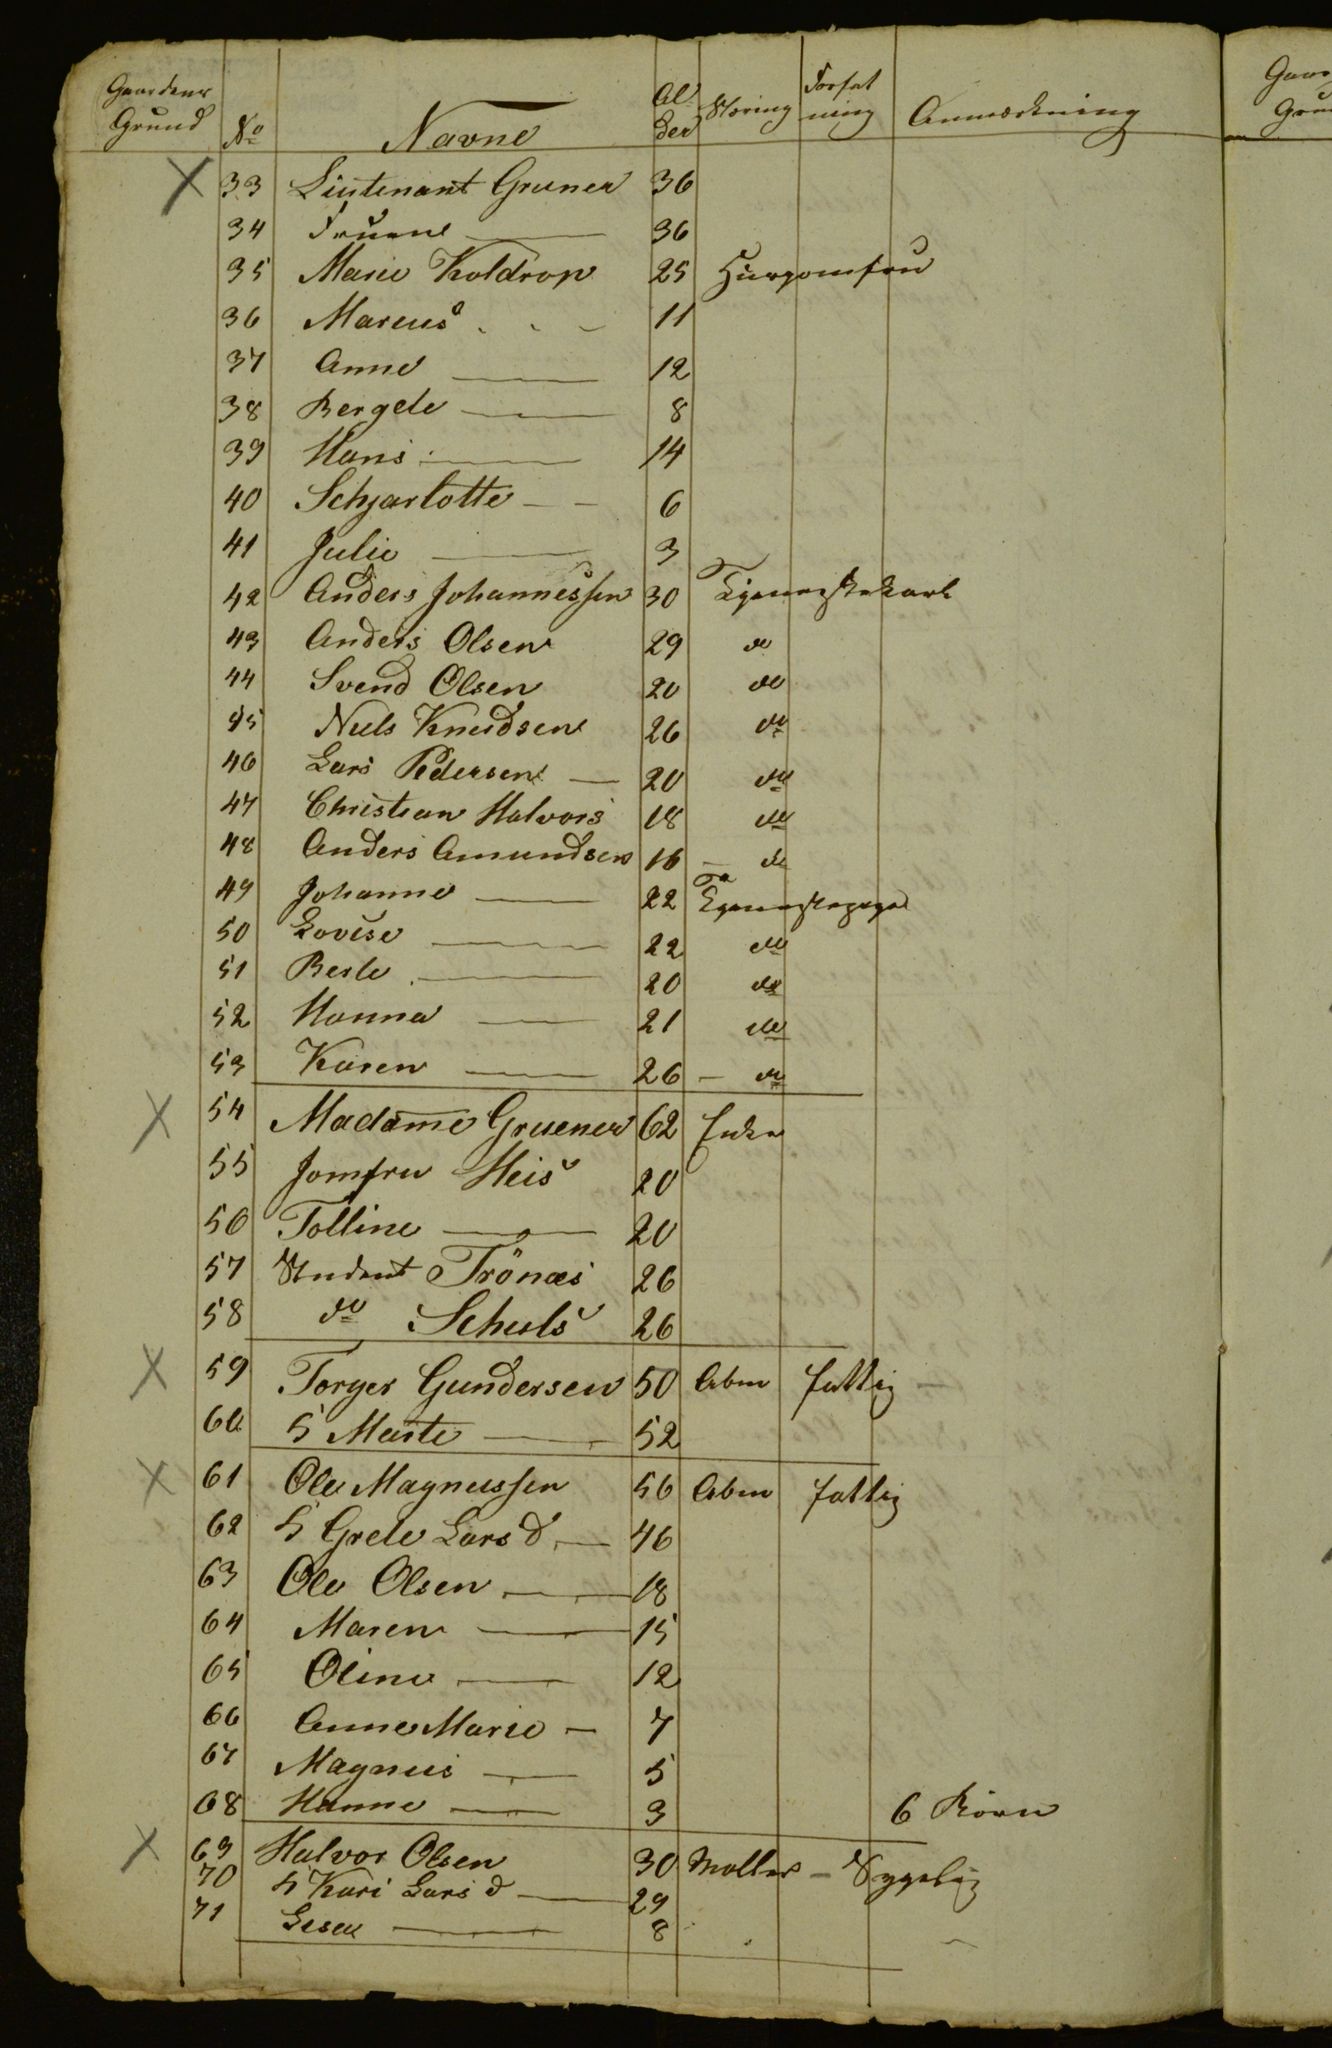 Gaardens Grund No Navne Alder Næring Forfatning Anmærkning
X 33 Lieutenant Gruner 36
34 Fruene — 36
35 Marie Koldrop 25 Huusjomfru
36 Marcus 11
37 Anne — 12
38 Bergete — 8
39 Hans — 14
40 Schjarlotte — 6
41 Julie — 3
42 Anders Johannessen 30 Tjenestekarl
43 Anders Olsen 29 do
44 Svend Olsen 20 do
45 Niels Knudsen 26 do
46 Lars Pedersen — 20 do
47 Christian Halvors 18 do
48 Anders Amundsen 16 — do
49 Johanne — 22 Tjenestepige
50 Lovise — 22 do
51 Berte — 20 do
52 Hanna — 21 do
53 Karen — 26 — do
X 54 Madame Gruener 62 Enke
55 Jomfru Heis 20
56 Tolline — 20
57 Student Trönæs 26
58 do Schuls 26
X 59 Torger Gundersen 50 Abm fattig
60 h Marte — 52
X 61 Ole Magnussen 56 Abm fattig
62 h Grete Lars d — 46
63 Ole Olsen — 18
64 Maren — 15
65 Oline — 12
66 Anne Marie — 7
67 Magnus — 5
68 Hanne — 3 6 Börn
X 69 Halvor Olsen 30 Møller — Sygelig
70 h Kari Lars d — 29
71 — 8